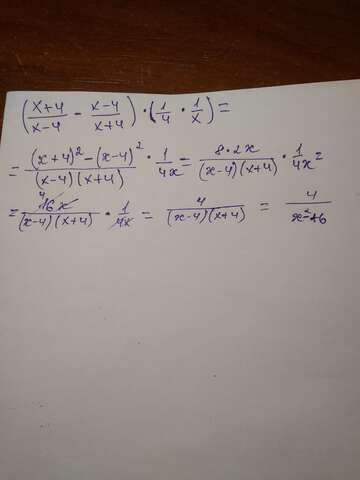 (x+4/x-4 - x-4/x+4) · (1/4 · 1/x) =
= (x+4)² - (x-4)²/(x-4)(x+4) · 1/4x = 8·2x/(x-4)(x+4) · 1/4x =
= 4 16x/(x-4)(x+4) · 1/4x = 4/(x-4)(x+4) = 4/x²-16